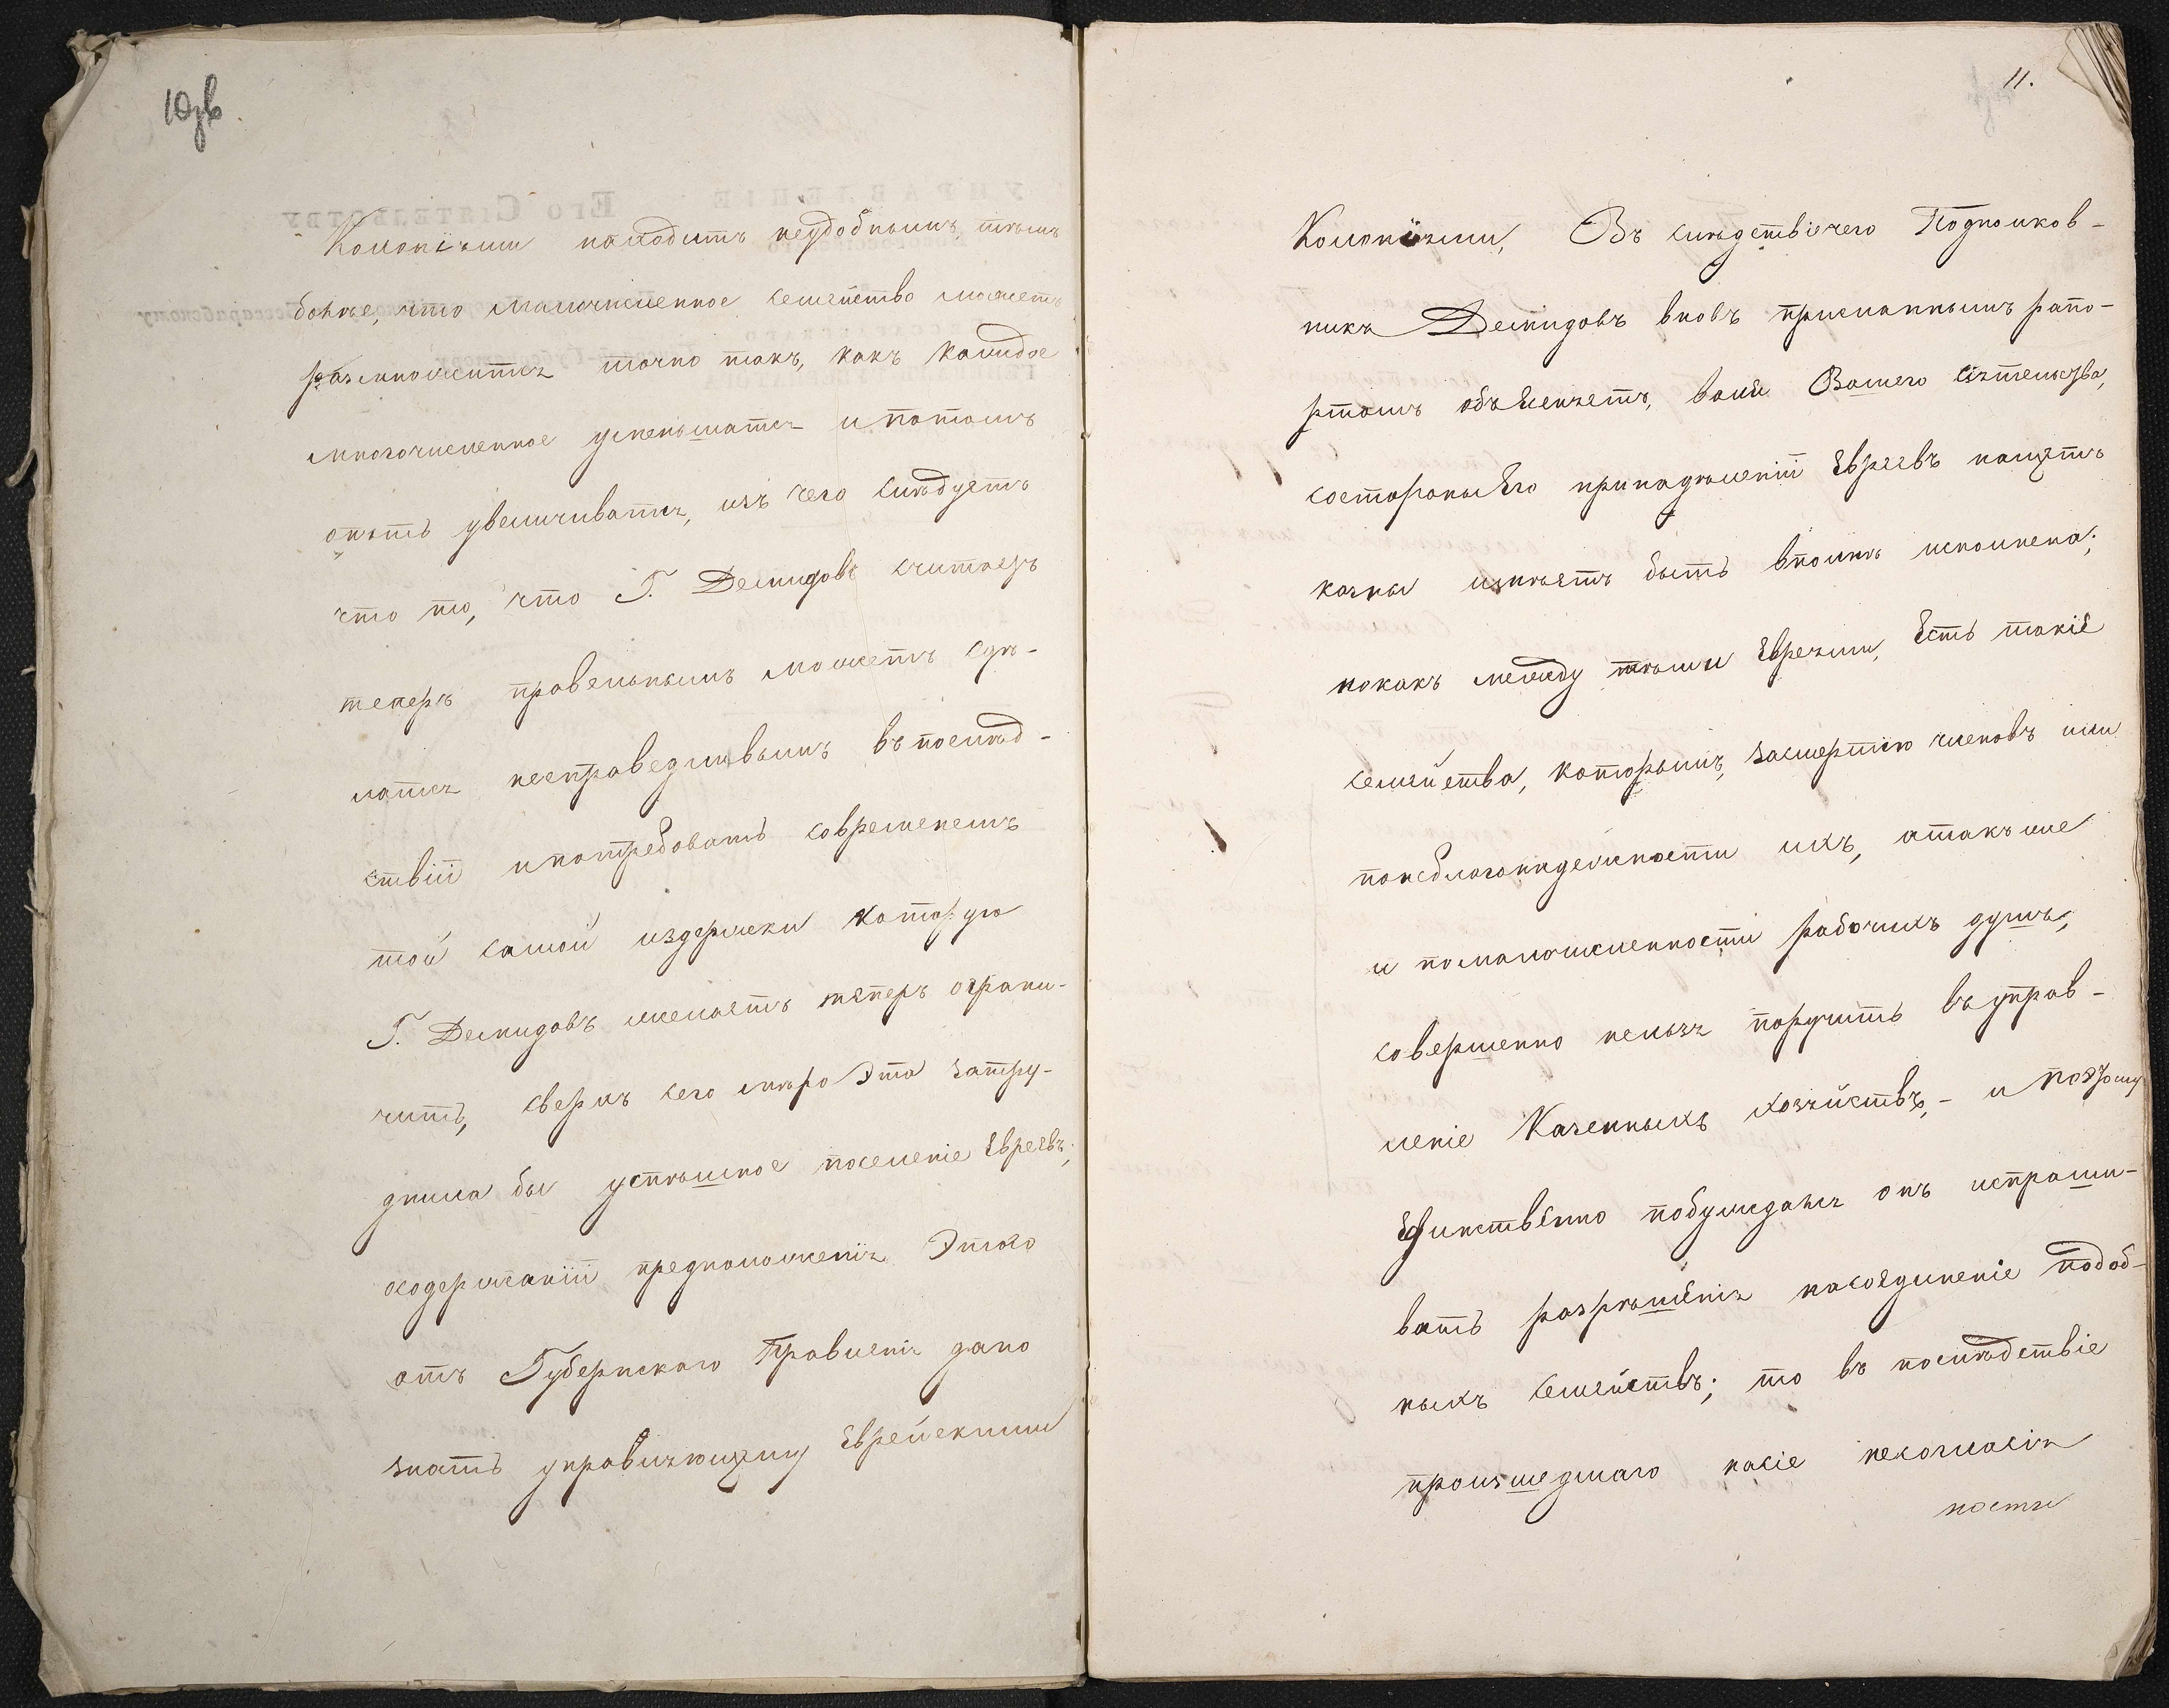 10зв.
Колоніями находитъ неудобнымъ, тѣмъ
болѣе, что малочисленное семейство можетъ
размножится точно такъ, какъ каждое
многочисленное уменьшатся и потомъ
опять увеличиватся, изъ чего слѣдуетъ
что то, что Г. Демидовъ считаетъ
теперь правельнымъ можетъ сдѣ-
латся несправедливымъ въ послѣд-
ствіи и потребовать современемъ
той самой издержки которую
Г. Демидовъ желаетъ теперь ограни-
чить, сверхъ сего мѣра эта затру-
днила бы успѣшное поселеніе Евреевъ;
осодержаніи предположенія этаго
отъ Губернскаго Правленія дано
знать управляющему Еврейскими
11.
Колоніями, Въ слѣдствіе чего Подполков-
никъ Демидовъ вновъ присланнымъ рапо-
ртомъ объясняетъ, воля Вашего Сіятельства,
состороны его принадѣленіи Евреевъ насчетъ
казны имѣетъ быть вполнѣ исполнена;
нокакъ между тѣми Евреями, есть такіе
семейства, которымъ, засмертію членовъ или
понеблагонадежности ихъ, атакъ же
и помалочисленности рабочихъ душъ,
совершенно нельзя поручить въ управ-
леніе Казенныхъ хозяйствъ, - и поэтому
Единственно побуждался онъ испраши-
вать разрѣшенія насоединеніе подоб-
ныхъ семействъ; то въ послѣдствіе
произшедшаго насіе несогласія
ность